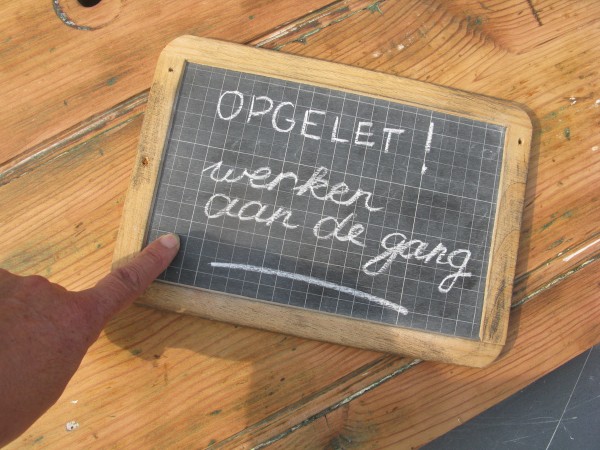 OPGELET!
werken
aan de gang